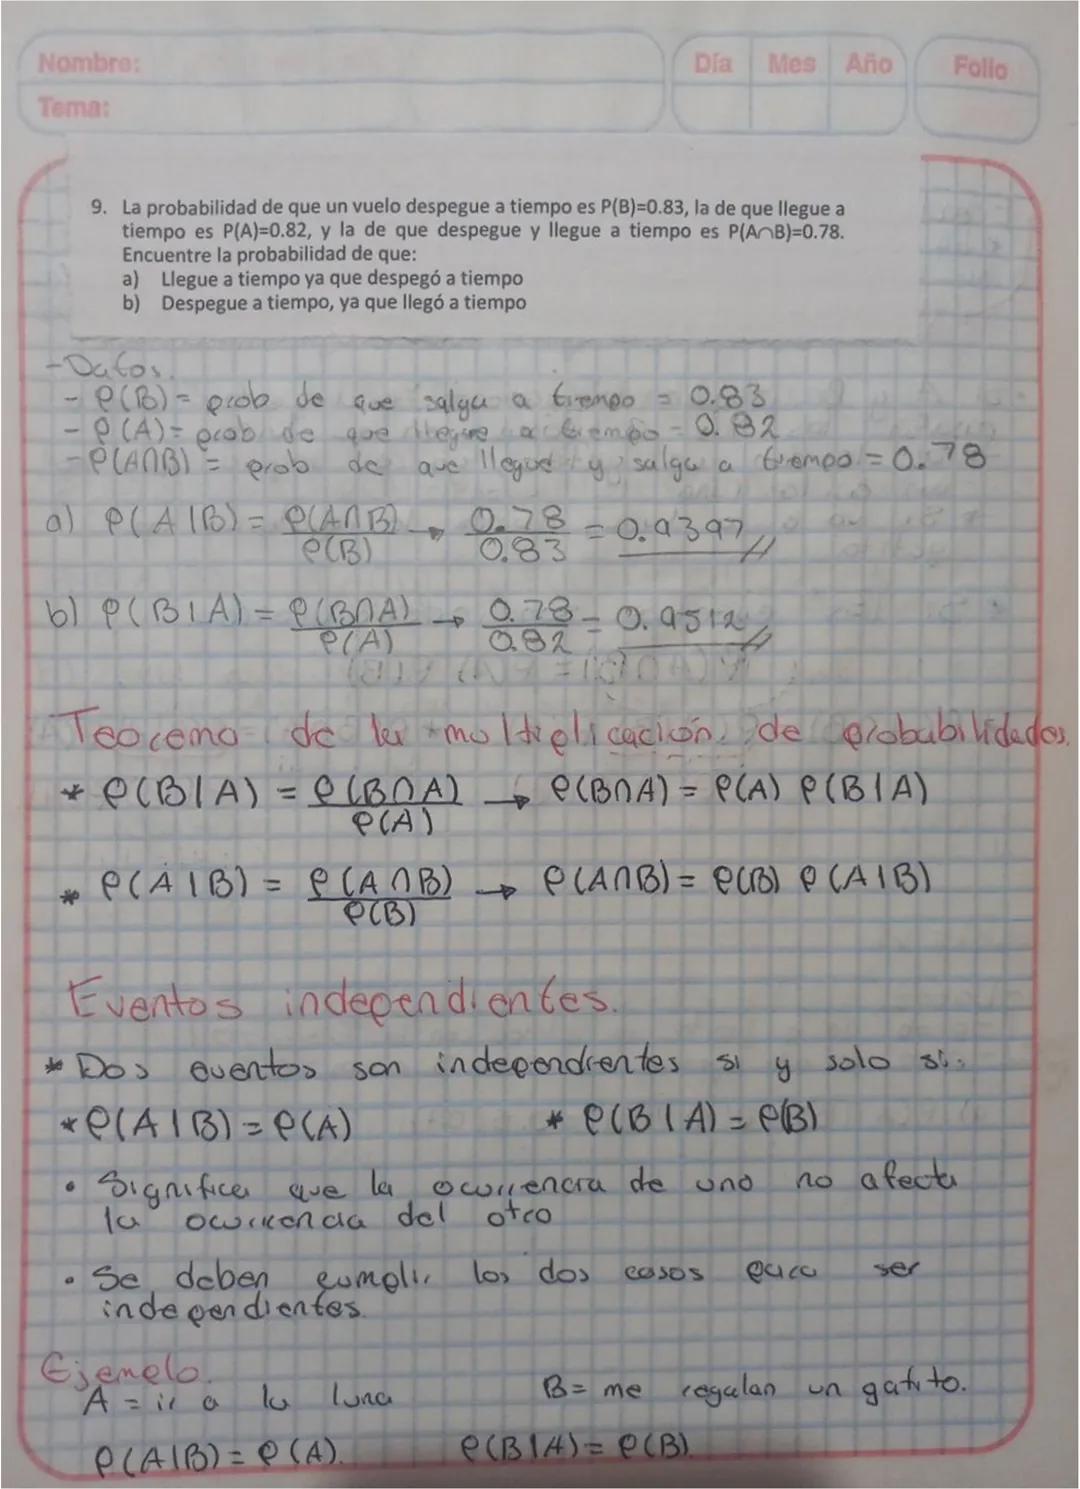 Nombre:
Día Mes Año
Folio
Tema:
9. La probabilidad de que un vuelo despegue a tiempo es P(B)=0.83, la de que llegue a
tiempo es P(A)=0.82, y la de que despegue y llegue a tiempo es P(A∩B)=0.78.
Encuentre la probabilidad de que:
a) Llegue a tiempo ya que despegó a tiempo
b) Despegue a tiempo, ya que llegó a tiempo
-Datos.
- P(B) = prob de que salga a tiempo = 0.83
- P(A) = prob de que llegue a tiempo = 0.82
- P(A∩B) = prob de que llegue y salga a tiempo = 0.78
a) P(A|B) = P(A∩B)/P(B) → 0.78/0.83 = 0.9397
b) P(B|A) = P(B∩A)/P(A) → 0.78/0.82 = 0.9512
Teorema de la multiplicación de probabilidades.
* P(B|A) = P(B∩A)/P(A) → P(B∩A) = P(A) P(B|A)
* P(A|B) = P(A∩B)/P(B) → P(A∩B) = P(B) P(A|B)
Eventos independientes.
* Dos eventos son independientes si y solo si:
* P(A|B) = P(A) * P(B|A) = P(B)
• Significa que la ocurrencia de uno no afecta
la ocurrencia del otro
• Se deben cumplir los dos casos para ser
independientes.
Ejemplo.
A = ir a la luna B = me regalan un gatito.
P(A|B) = P(A). P(B|A) = P(B).